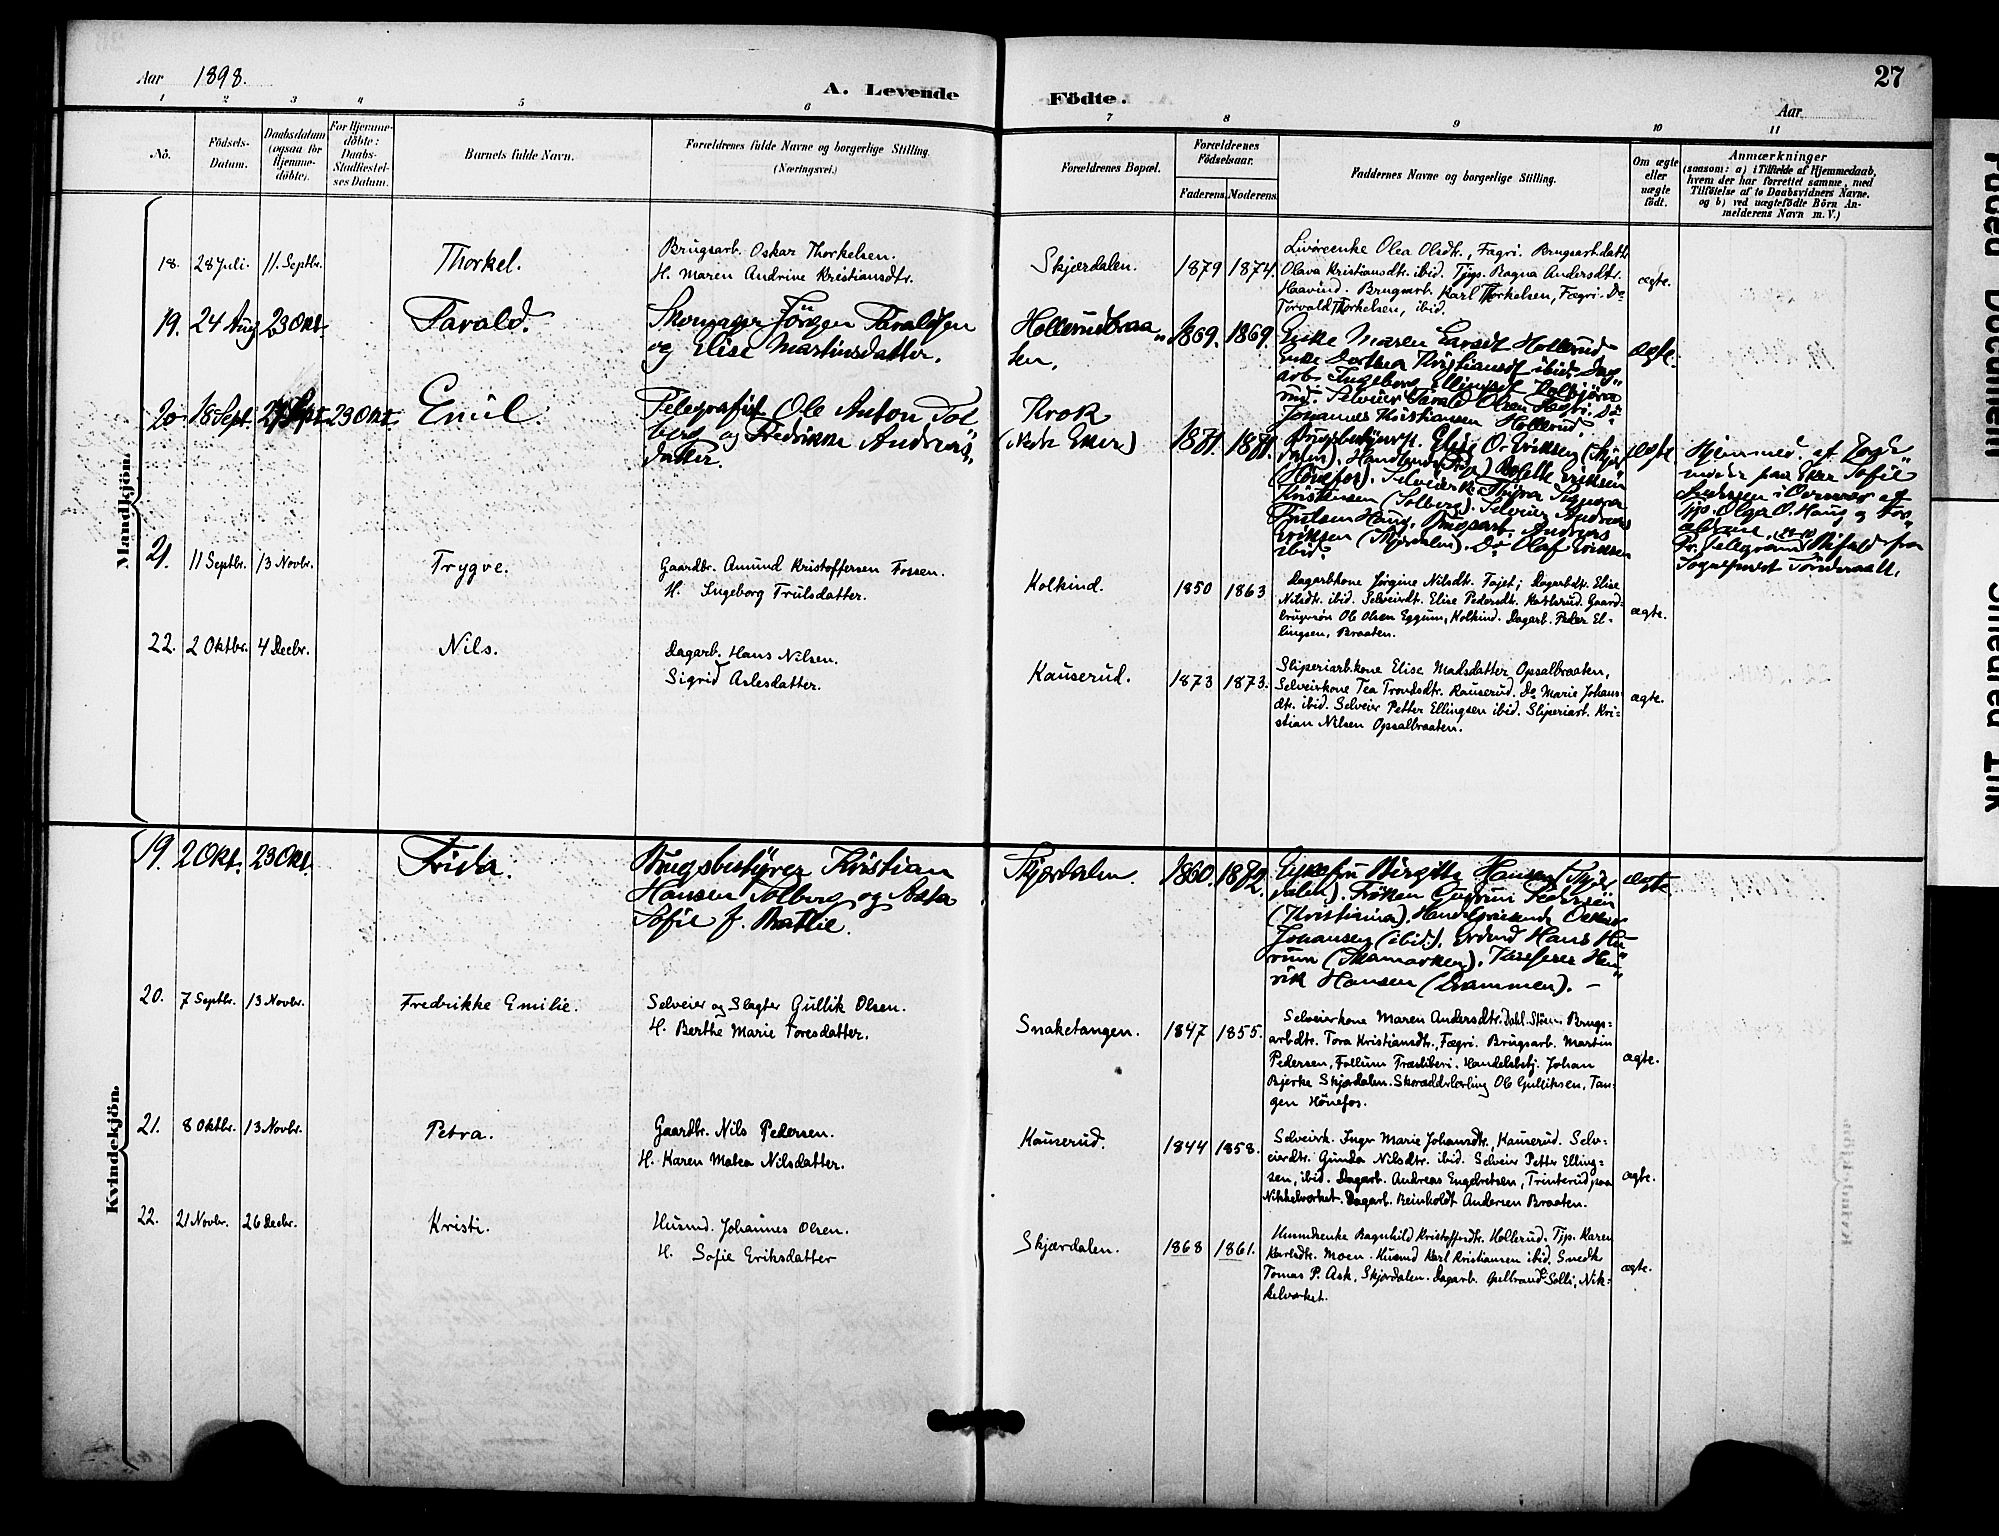 Aar 1898.
A. Levende Födte.
27
Aar
1 2 3 4 5 6 7 8 9 10 11
No.
Födsels-Datum.
Daabsdatum (ogsaa for Hjemme-döbte).
For Hjemme-döbte: Daabs-Stadfæstel-ses Datum.
Barnets fulde Navn.
Forældrenes fulde Navne og borgerlige Stilling. (Næringsvei.)
Forældrenes Bopæl.
Forældrenes Födselsaar.
Faderens. Moderens.
Faddernes Navne og borgerlige Stilling.
Om ægte eller uægte födt.
Anmærkninger
(saasom: a) i Tilfælde af Hjemmedaab,
hvem der har forrettet samme, med
Tilföielse af to Daabsvidners Navne.
og b) ved uægtefödte Börn An-
melderens Navn m. V.)
Mandkjön.
18. 28 Juli. 11. Septbr.
Thorkel.
Brugsarb. Oskar Thorkelsen.
H. Maren Andrine Kristiansdtr.
Skjærdalen.
1879 1874.
Olea Olsdtr., Fagri. Brugsarb.datt.
Olava Kristiansdtr. ibid. Tjgp. Ragna Andersdtr.
Haavind. Brugsarb. Karl Thorkelsen, Fægri. Do
Torvald Thorkelsen, ibid.
ægte.
19. 24 Aug 23 Okt.
Tarald.
Skomager Jörgen Taraldsen
og Elise Martinsdatter.
Hollerudbraa„
ten,
1869. 1869.
Enke Maren Larsdt Hollerud
Enke Dorthea Kristiansdt ibid. Dag„
arb. Ingeborg Ellingsdt
Selveier Tarald Olsen Fægri. Do
Johannes Kristiansen Hollerud.
ægte.
20 18 Sept. 23 Okt.
Emil.
Telegrafist Ole Anton Sol
berg og Fredrikke Andreas„
datter.
Krok
(Nedr Eker)
1871. 1871.
Brugsbestyrersk. Elise O. Eriksen (Skjær
dalen). Bolette Eriksen
(Hönefos). Selveiersk. Thyra Signora
Kristensen (Solberg). Selveier Andreas
Trulsen Haug. Brugsarb. Andreas
Eriksen (Skjærdalen). Do Olaf Eriksen
ibid.
ægte
Hjemmed. af Jorde„
moder paa Eker Sofie
i Overvær af
Tjp. Olga O. Haug og For„
ældrene.
Pr. Telegram Bifald fra
Sognepræst
21. 11 Septbr. 13 Novbr.
Trygve.
Gaardbr. Amund Kristoffersen Fossen.
H. Ingeborg Trulsdatter.
Kolkind.
1850 1863
Dagarbkone Jörgine Nilsdt. Fajet; Dagarbdtr. Elise
Nilsdt. ibid. Selveierdt. Elise Pedersdt. Karlsrud. Gaard-
brugersön Ole Olsen Eggum, Kolkind. Dagarb. Peder El-
lingsen, Braaten.
ægte.
22. 2 Oktbr. 4 Decbr.
Nils.
Dagarb. Hans Nilsen.
Sigrid Aslesdatter.
Kauserud.
1873 1873.
Sliperiarb.kone Elise Madsdatter Opsalbraaten,
Selveierkone Tea Trondsdtr. Kauserud. Do Marie Johans-
dt. ibid. Selveier Petter Ellingsen ibid. Sliperiarb. Kri-
stian Nilsen Opsalbraaten.
ægte.
Kvindekjön.
19. 2 Okt. 23 Okt.
Frida.
Brugsbestyrer Kristian
Hansen Solberg og Asta
Sofie f. Bratlie.
Skjærdalen.
1860. 1872.
Birgitte Hansen (Skjær
dalen). Fröken Gudrun Pedersen
(Kristiania). Oskar
Johansen (ibid). Hans Hu„
rum (Hamarken). Hen„
rik Hansen (Drammen). –
ægte
20. 7 Septbr. 13 Novbr.
Fredrikke Emilie.
Selveier og Slagter Gullik Olsen.
H. Berthe Marie Toresdatter.
Snaketangen.
1847 1855.
Selveierkone Maren Andersdtr. Dahl. Brugs-
arbdtr. Tora Kristiansdtr., Fægri. Brugsarb. Martin
Pedersen, Follum Træsliberi. Handelsbetj. Johan
Bjerke Skjærdalen. Skrædderlærling Ole Gulliksen, Tan-
gen Hönefos.
ægte.
21. 8 Oktbr. 13 Novbr.
Petra.
Gaardbr. Nils Pedersen.
H. Karen Matea Nilsdatter.
Kauserud.
1844 1858.
Selveierk. Inger Marie Johansdtr., Kauserud. Selv-
eierdtr. Gunda Nilsdtr. ibid. Selveier Petter Elling-
sen, ibid. Dagarb. Andreas Engebretsen, Trinterud paa
Nikkelværket. Dagarb. Reinholdt Andersen Braaten.
ægte.
22. 21 Novbr. 26 Decbr.
Kristi.
Husmd. Johannes Olsen.
H. Sofie Eriksdatter
Skjærdalen.
1868 1861.
Husmdsenke Ragnhild Kristoffersdtr. Hollerud. Tjp. Karen
Karlsdtr. Moen. Husmd Karl Kristiansen ibid. Smedk
Tomas P. Ask, Skjærdalen. Dagarb. Gulbrand Solli, Nik-
kelværket.
ægte.
Faded Document
Smeared Ink